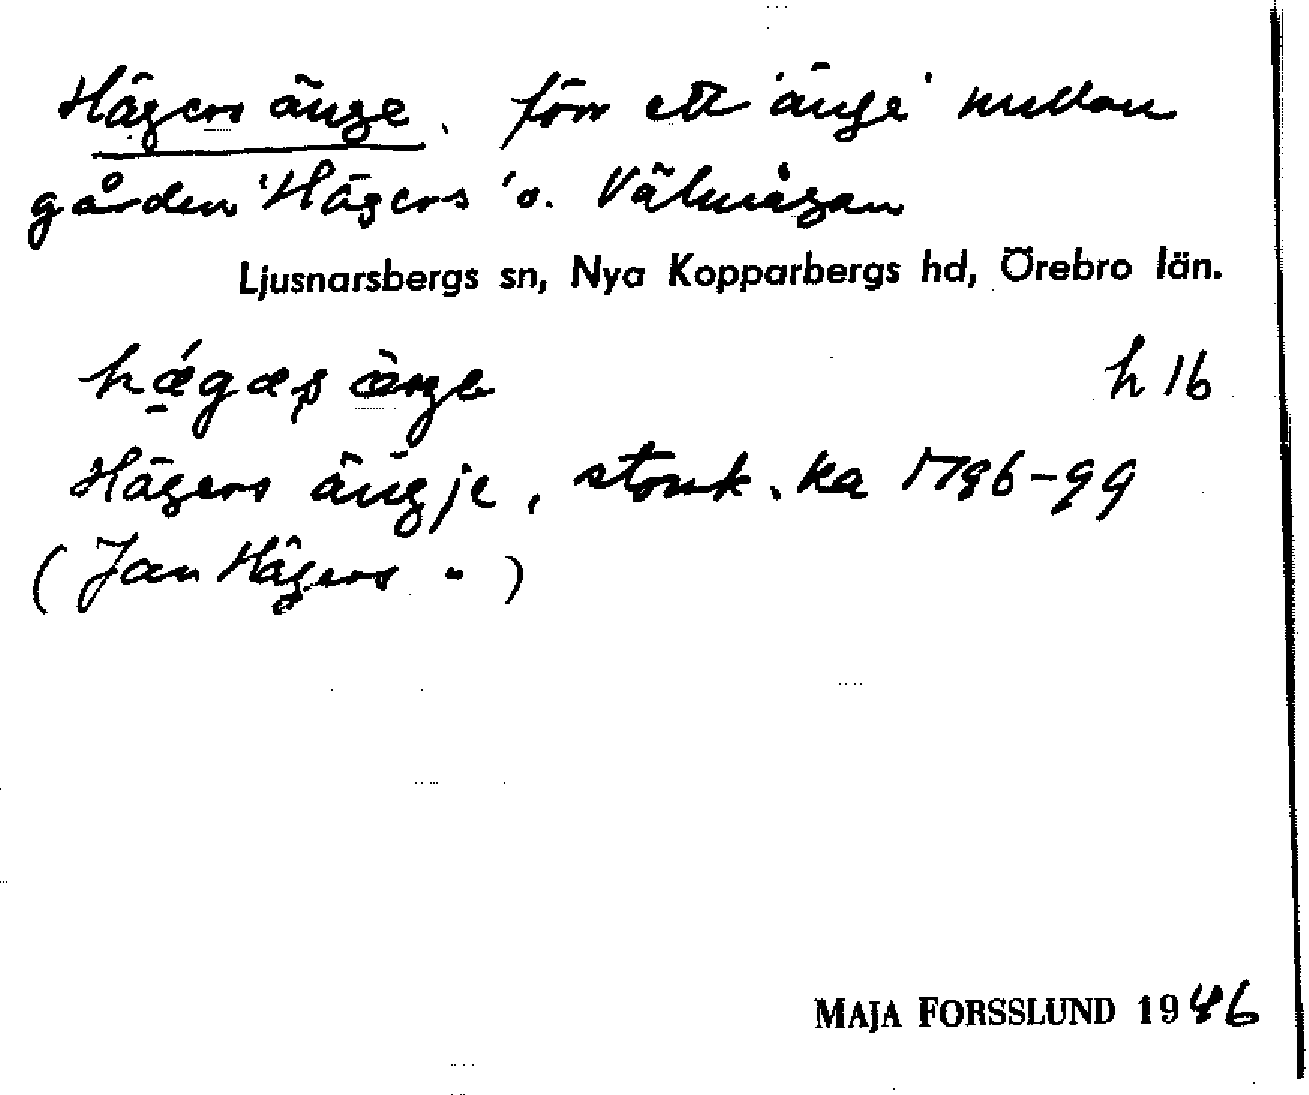 Hägers änge, förr ett 'änge' mellan
gården 'Hägers' o. Välmåsan
Ljusnarsbergs sn, Nya Kopparbergs hd, Örebro län.
hǽgæş ænge h 16
Hägers ängje, stomk. ka 1796-99
(Jan Hägers " )
MAJA FORSSLUND 1946